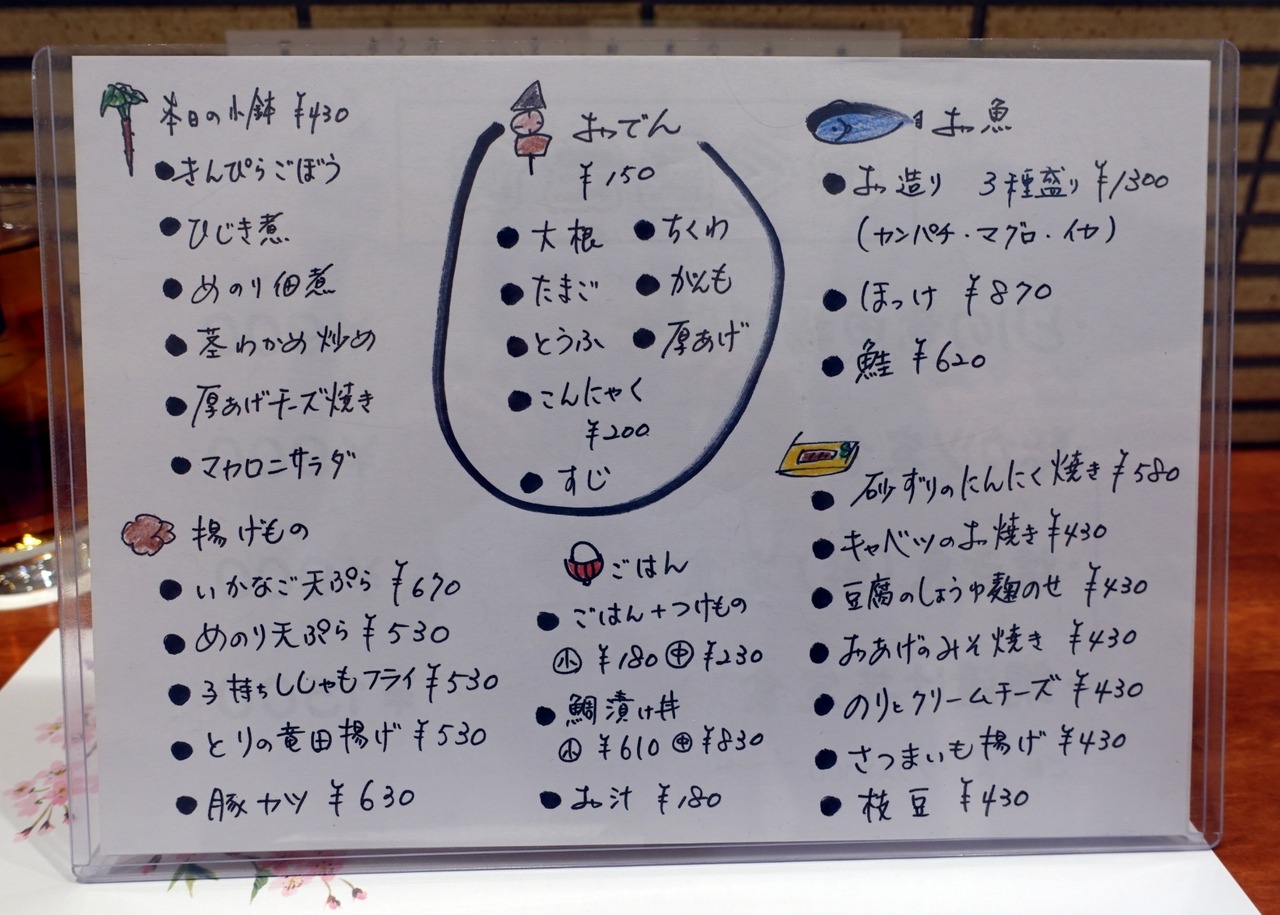 本日の小鉢 ¥430
●きんぴらごぼう
●ひじき煮
●めのり佃煮
●茎わかめ炒め
●厚あげチーズ焼き
●マカロニサラダ
揚げもの
●いかなご天ぷら ¥670
●めのり天ぷら ¥530
●子持ちししゃもフライ ¥530
●とりの竜田揚げ ¥530
●豚カツ ¥630
おでん
¥150
●大根 ●ちくわ
●たまご ●がんも
●とうふ ●厚あげ
●こんにゃく
¥200
●すじ
ごはん
●ごはん+つけもの
㊙小 ¥180 ㊥ ¥230
●鯛漬け丼
小 ¥610 ㊥ ¥830
●お汁 ¥180
お魚
●お造り 3種盛り ¥1300
(カンパチ・マグロ・イカ)
●ほっけ ¥870
●鮭 ¥620
●砂ずりのにんにく焼き ¥580
●キャベツのお焼き ¥430
●豆腐のしょうゆ麹のせ ¥430
●おあげのみそ焼き ¥430
●のりとクリームチーズ ¥430
●さつまいも揚げ ¥430
●枝豆 ¥430